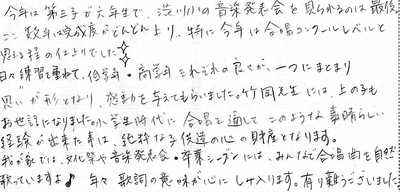 今年は第三子が六年生で、渋川小の音楽発表会を見られるのは最後
ここ数年は完成度がどんどん上り、特に今年は合唱コンクールレベルと
思える程の仕上りでした
日々練習を重ねて、低学年・高学年それぞれの良さが、一つにまとまり
思いが形となり、感動を与えてもらいました。竹岡先生には、上の子も
お世話になりました。小学生時代に合唱を通して、このような素晴らしい
経験が出来た事は、純粋な子供達の心の財産となります。
我が家では、文化祭や音楽発表会・卒業シーズンには、みんなで合唱曲を自然
歌っていますよ♪ 年々歌詞の意味が心にしみ入ります。有り難うございました